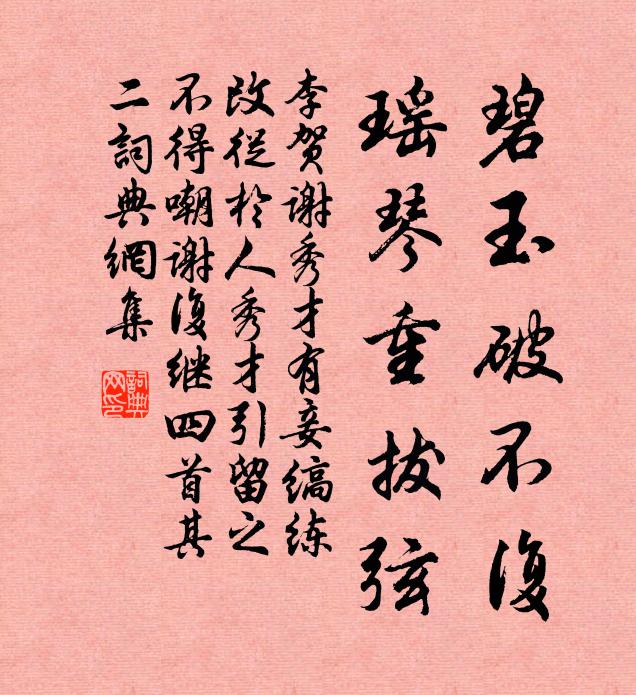 碧玉破不復
瑶琴重拔弦
李贺谢秀才有妾缟练
改從於人秀才引留之
不得嘲谢復继四首其
二詞典網集
詞典网印